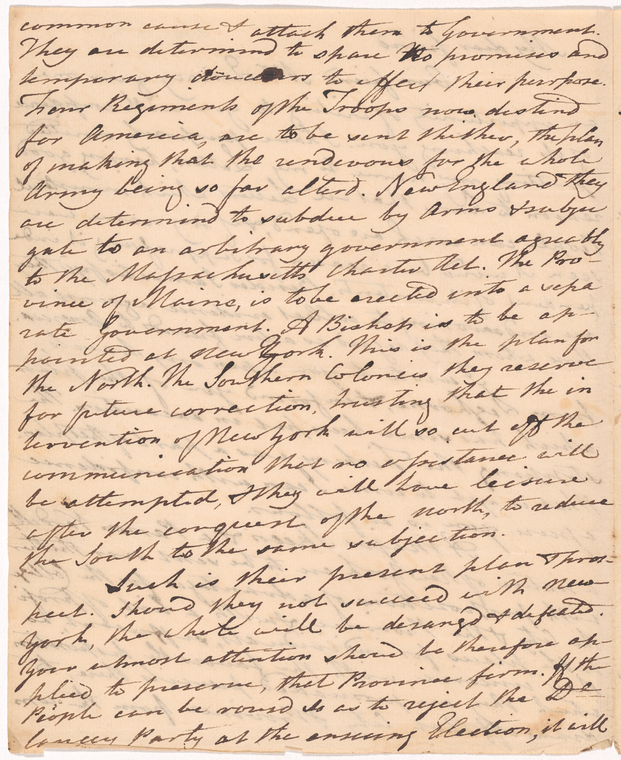 common cause & attach them to Government.
They are determind to spare no promises and
temporary douceurs to effect their purpose.
Four Regiments of the Troops now destind
for America, are to be sent thither, the plan
of making that the rendevous for the whole
Army being so far alterd. New England they
are determind to subdue by Arms & subju
gate to an arbitrary government agreably
to the Massachusetts Charter Act. The Pro-
vince of Maine, is to be erected into a sepa
rate Government. A Bishop is to be ap-
pointed at New York. This is the plan for
the North. The Southern Colonies they reserve
for future correction, trusting that the in
tervention of New York will so cut off the
communication that no assistance will
be attempted, & they will have leisure
after the conquest of the north, to reduce
the South to the same subjection.
Such is their present plan & pros-
pect. Should they not succeed with New
York, the whole will be derangd & defeated.
Your utmost attention shoud be therefore ap-
plied to preserve, that Province firm. If the
People can be rousd so as to reject the De
lancey Party at the ensuing Election, it will